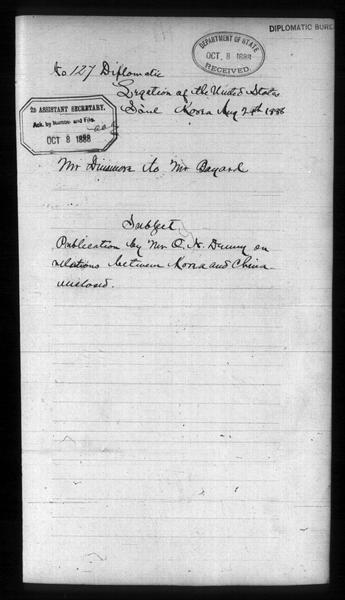 DIPLOMATIC BUREA
DEPARTMENT OF STATE
OCT 8 1888
RECEIVED.
No 127 Diplomatic
Legation of the United States
Söul Korea Aug 24th 1888
2D ASSISTANT SECRETARY.
Ack. by Number and File.
OCT 8 1888
Mr Dinsmore to Mr Bayard
Subject
Publication by Mr. O. N. Denny on
relations between Korea and China
enclosed.